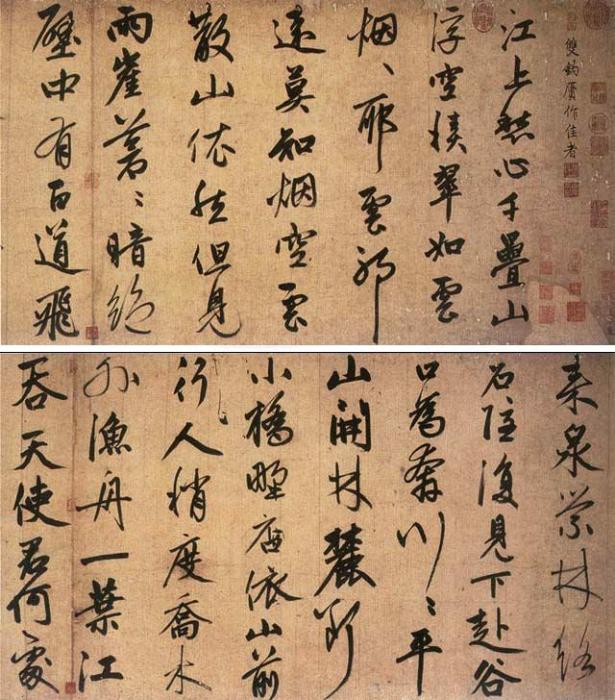 雙鈎贋作佳者
江上愁心千疊山
浮空積翠如雲
烟、耶雲耶
遠莫知烟空雲
散山依然但見
兩崖蒼〻暗絕
壁中有百道飛
來泉縈林絡
石隱復見下赴谷
口為奔川〻平
山開林麓斷
小橋野店依山前
行人稍度喬木
外漁舟一葉江
吞天使君何處